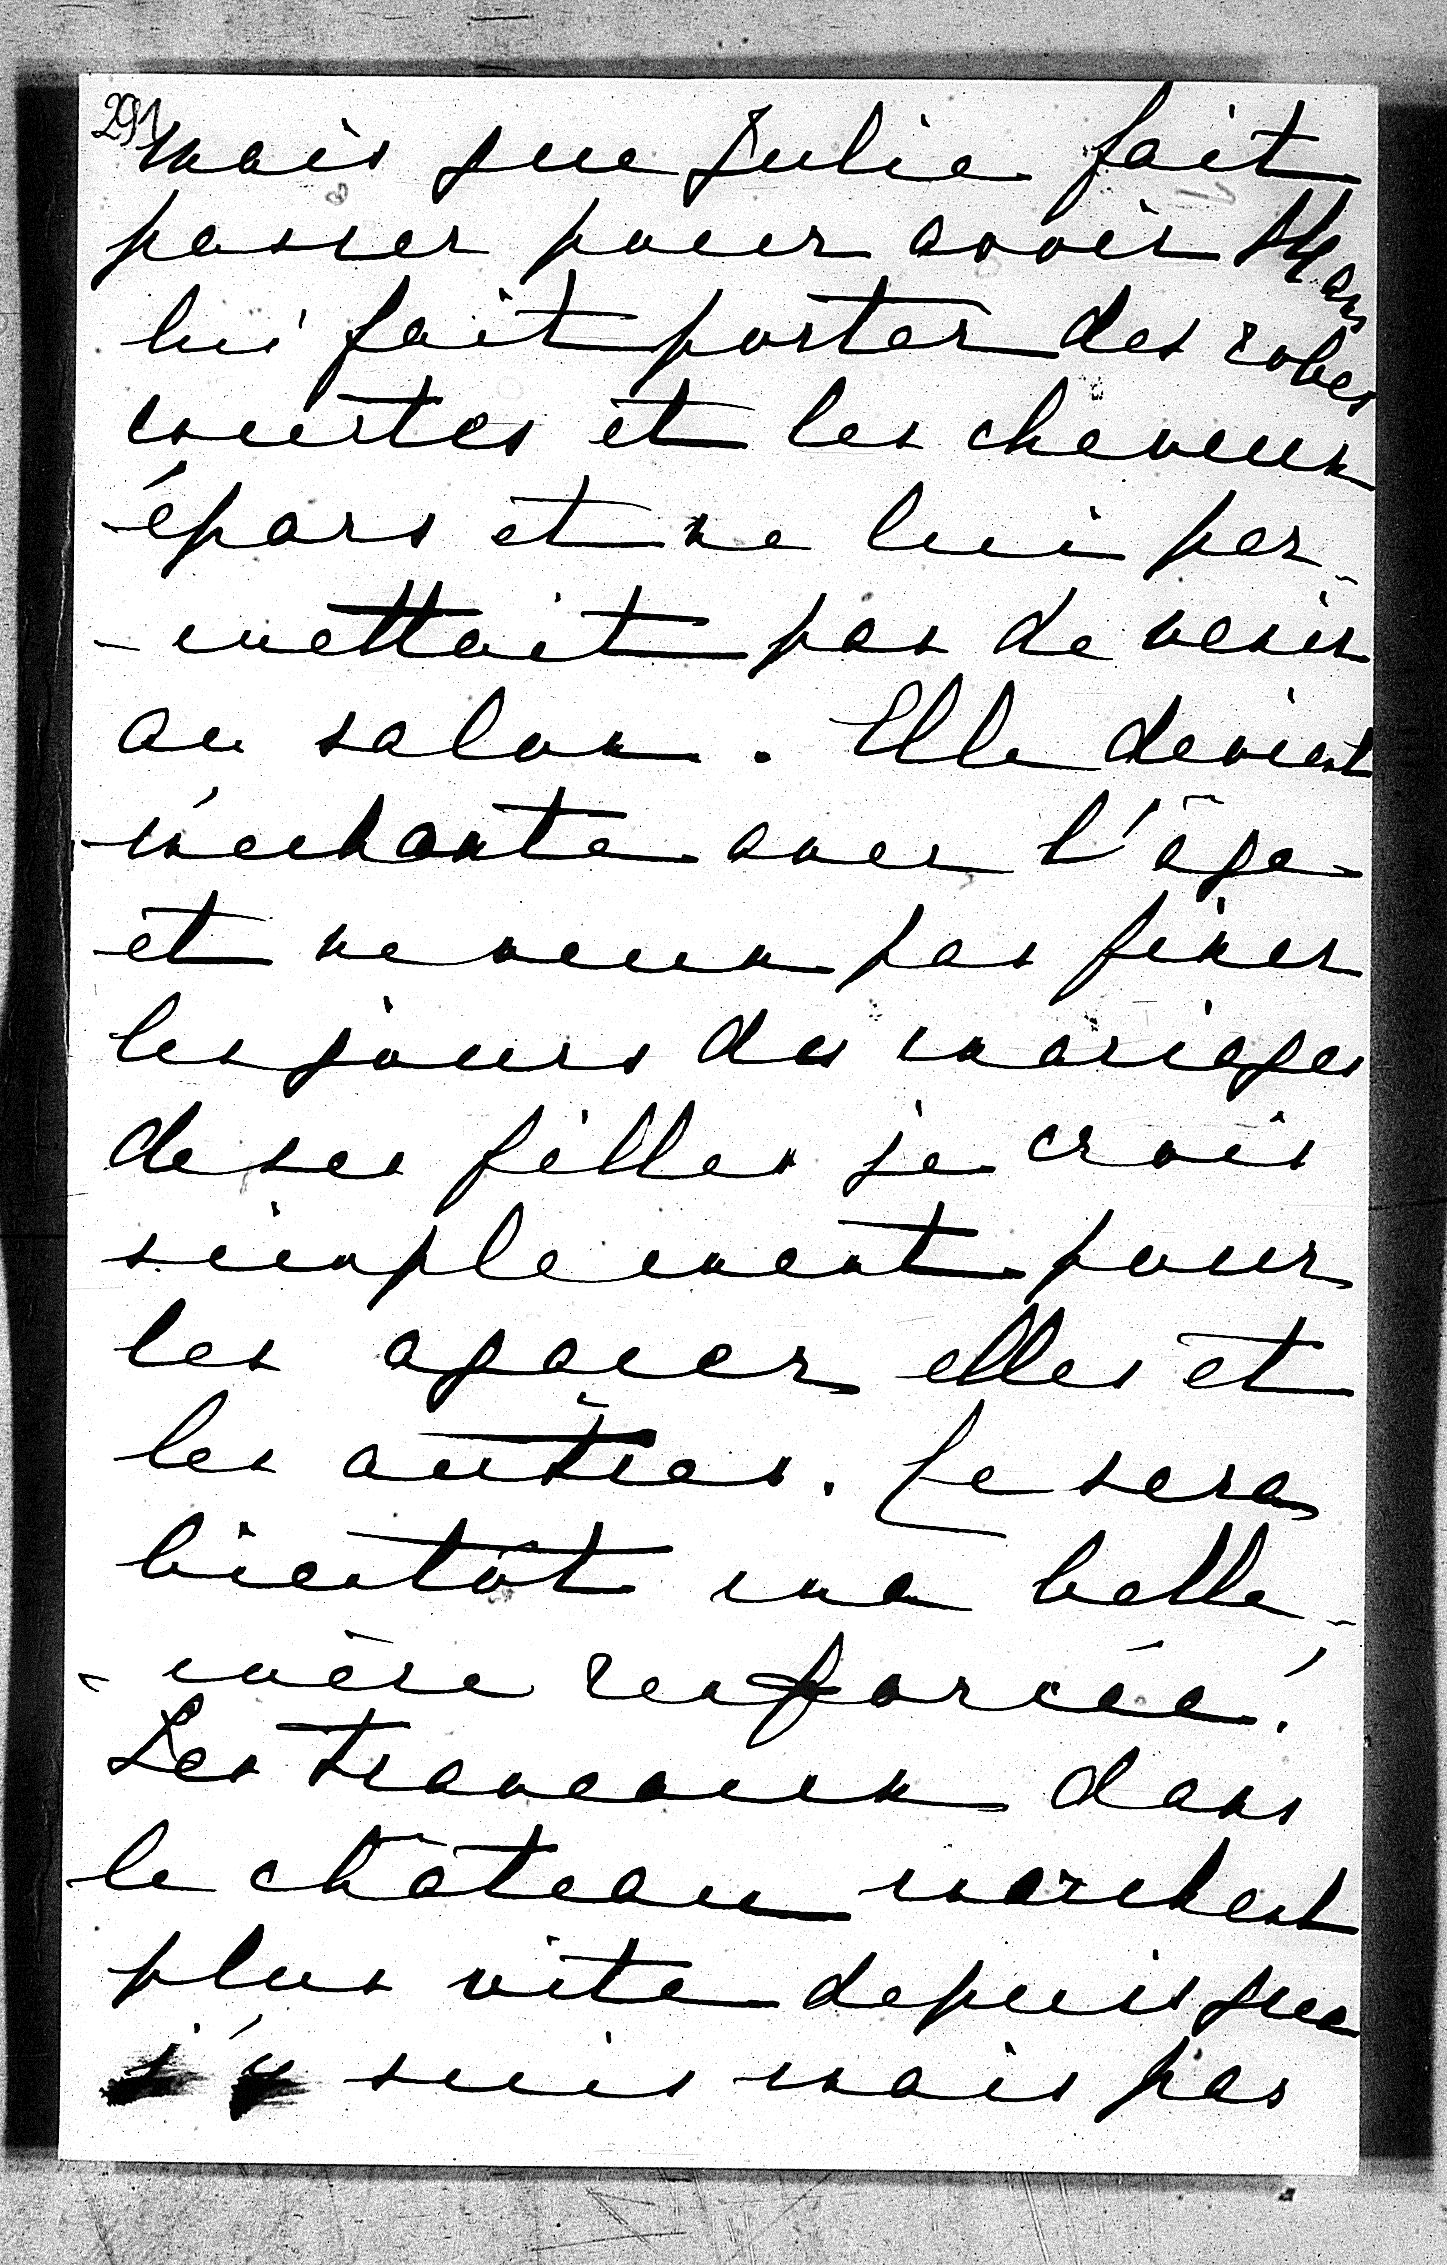 291
mais que Julie fait
passer pour avoir 14 ans
lui fait porter des robes
courtes et les cheveux
épars et ne lui per-
-mettait pas de venir
au salon. Elle devient
méchante avec l'âge
et ne veux pas fixer
les jours des mariages
de ses filles je crois
simplement pour
les agacer elles et
les autres. Ce sera
bientôt ma belle-
-mère renforcée!
Les travaux dans
le château marchent
plus vite depuis que
j'y suis mais pas